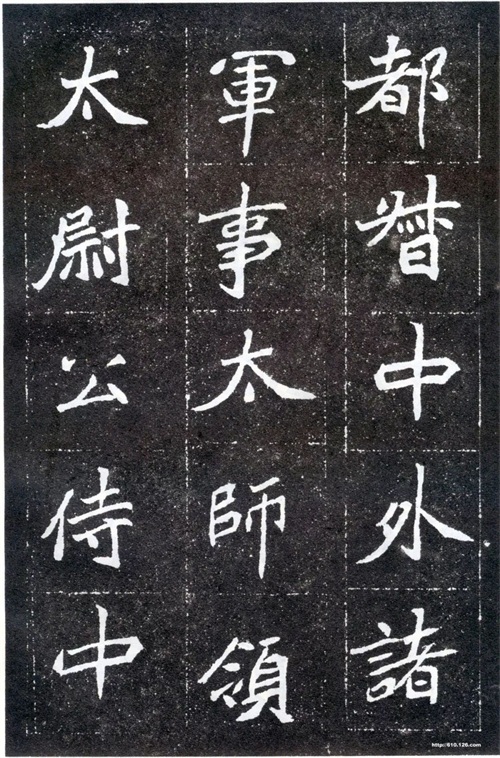 都督中外諸
軍事太師領
太尉公侍中
http://810.126.com